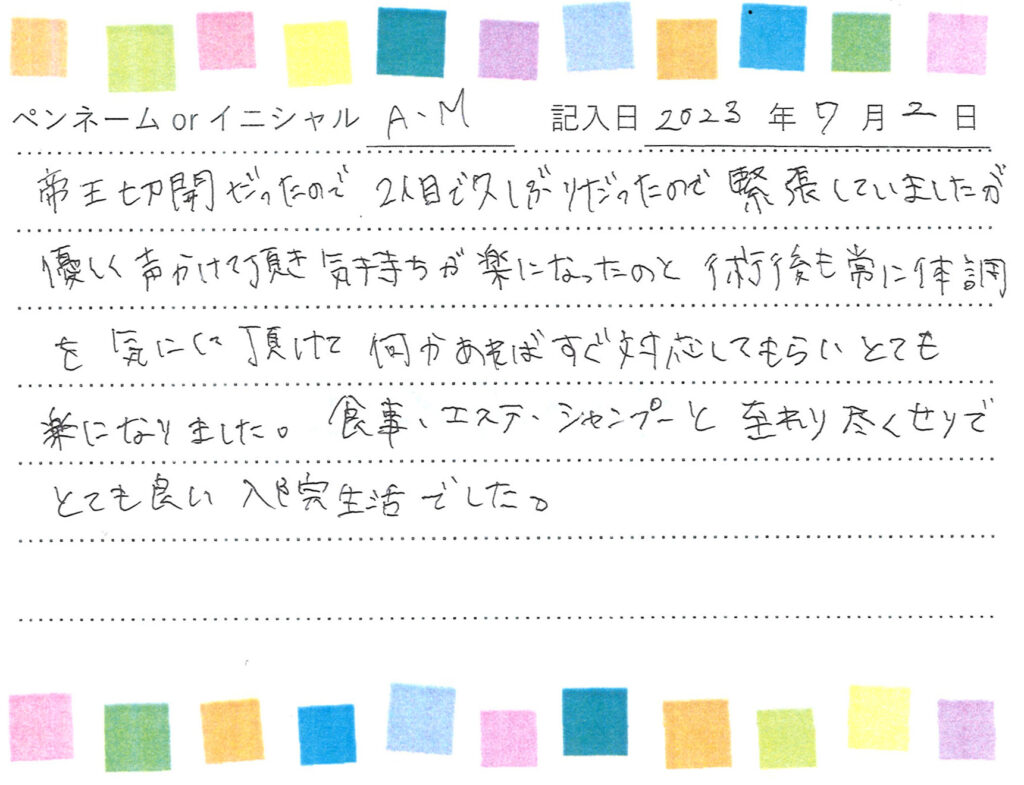 ペンネーム or イニシャル A・M 記入日 2023 年 7 月 2 日
帝王切開だったので 2人目で久しぶりだったので 緊張していましたが
優しく声かけて頂き 気持ちが楽になったのと 術後も常に体調
を気にして頂けて 何かあればすぐ対応してもらい とても
楽になりました。 食事、エステ・シャンプーと 至れり尽くせりで
とても良い 入院生活でした。